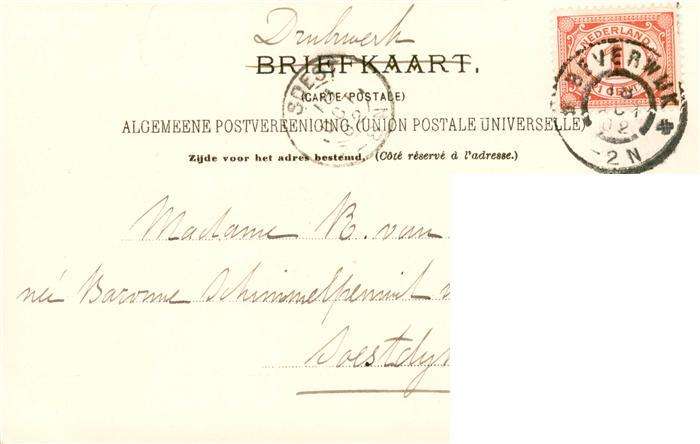 Drukwerk
BRIEFKAART.
(CARTE POSTALE)
ALGEMEENE POSTVEREENIGING (UNION POSTALE UNIVERSELLE)
Zijde voor het adres bestemd. (Côté réservé à l'adresse.)
NEDERLAND
1
BEVERWIJK
02
-2N
SOEST
Madame B. van
née Baronne Schimmelpennick
Soestdy